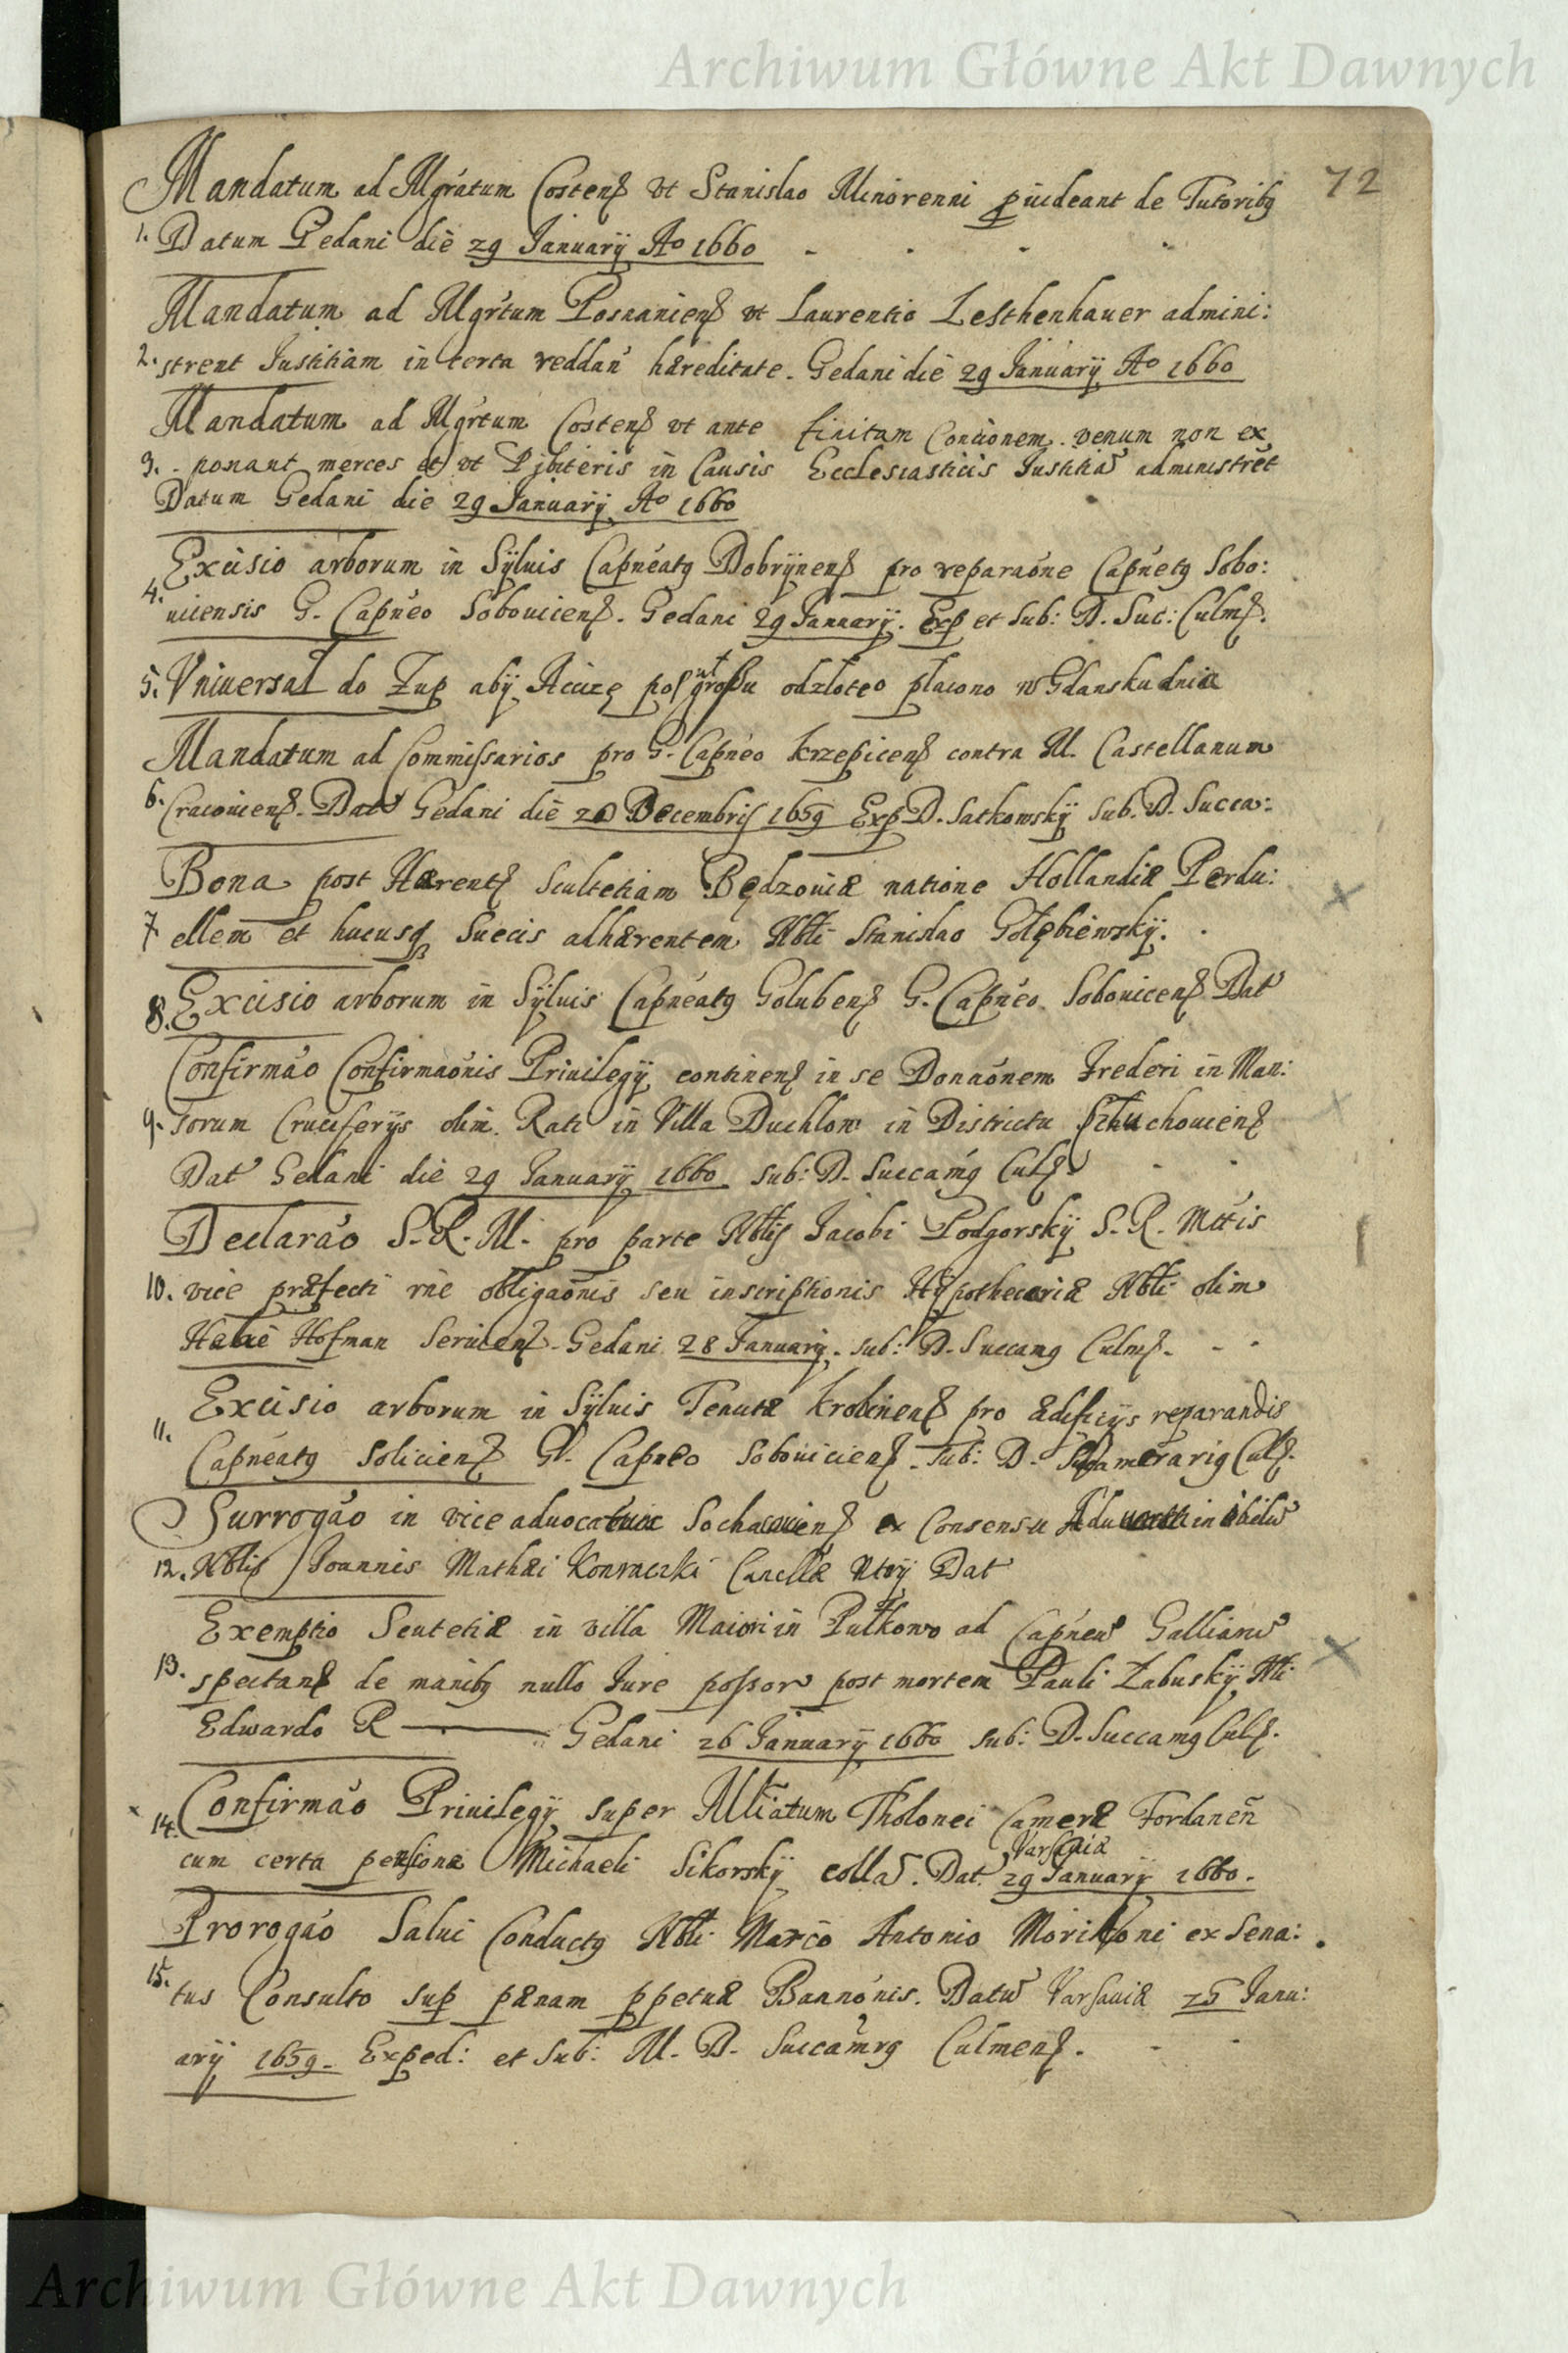 Archiwum Główne Akt Dawnych
72
Mandatum ad Mgratum Costens ut Stanislao Minorenni pvideant de Tutoribq
1. Datum Gedani die 29 Januarij Ao 1660
Mandatum ad Mgrtum Posnaniens vt Laurentio Lesthenhauer admini:
2. strent Justitiam in certa reddan hæreditate. Gedani die 29 Januarij Ao 1660
Mandatum ad Mgrtum Costens vt ante finitam Concionem venum non ex
3. ponant merces et vt Pjbiteris in Causis Ecclesiasticis Justitia administret
Datum Gedani die 29 Januarij Ao 1660
Excisio arborum in Sÿluis Capneatq Dobrÿnens pro reparaone Capnetq Sobo:
4. uicensis G. Capneo Sobouicens. Gedani 29 Januarij. Exp et Sub: D. Suc: Culms.
5. Vniuersal do Zup abÿ Accize pol groszu odzloteo placono w Gdansku dnia ut
Mandatum ad Commissarios pro G. Capneo Krzepicens contra M. Castellanum
6. Cracouiens. Dat Gedani die 20 Decembris 1659 Exp D. Satkowskÿ Sub. D. Succa:
Bona post Hærents Scultetiam Będzouiæ natione Hollandiæ Perdu:
7 ellem et hucusq Suecis adhærentem Nbli Stanislao Gołębiewskÿ.
8. Excisio arborum in Sÿluis Capneatq Golubens G. Capneo Sobouicens Dat
Confirmao Confirmaonis Priuilegij continens in se Donaonem Frederi in Man:
9. sorum Cruciferijs olim Rati in Villa Duchlow in Districtu Szluchouiens
Dat Gedani die 29 Januarij 1660 sub: D. Succamq Culs.
Declarao S. R. M. pro parte Nblis Jacobi Podgorskÿ S. R. Mttis
10. vice præfecti rne obligaonis seu inscriptionis Hÿpothecariæ Nbli olim
Hofman Seruiens. Gedani 28 Januarij. sub: D. Succamq Culms.
Excisio arborum in Sÿluis Tenutæ Krobinens pro ædificijs reparandis
11. Capneatq Soliciens G. Capneo Sobouiciens. Sub: D. Culs.
Surrogao in vice aduocatum Sochacouiens ex Consensu
12. Nblis Joannis Mathæi Konraczki Cancellæ Ntrij Dat
Exemptio Scutetiæ in villa Maiori in Pułkowo ad Capneu Galliani
13. spectans de manibq nullo Jure possor post mortem Pauli Zabuskÿ Nbli
Edwardo R Gedani 26 Januarij 1660 Sub: D. Succamq Culs.
14. Confirmao Priuilegij super Mltiatum Tholonei Cameræ Fordanen
Varsauiæ
cum certa pensione Michaeli Sikorskÿ colla. Dat 29 Januarij 1660.
Prorogao Salui Conductq Nbli Marco Antonio Morikoni ex Sena:
15. tus Consulto sup pænam ppetuæ Bannonis. Datu Varsauiæ 25 Janu:
arij 1659. Exped: et Sub: M. D. Succamrq Culmens.
Archiwum Główne Akt Dawnych